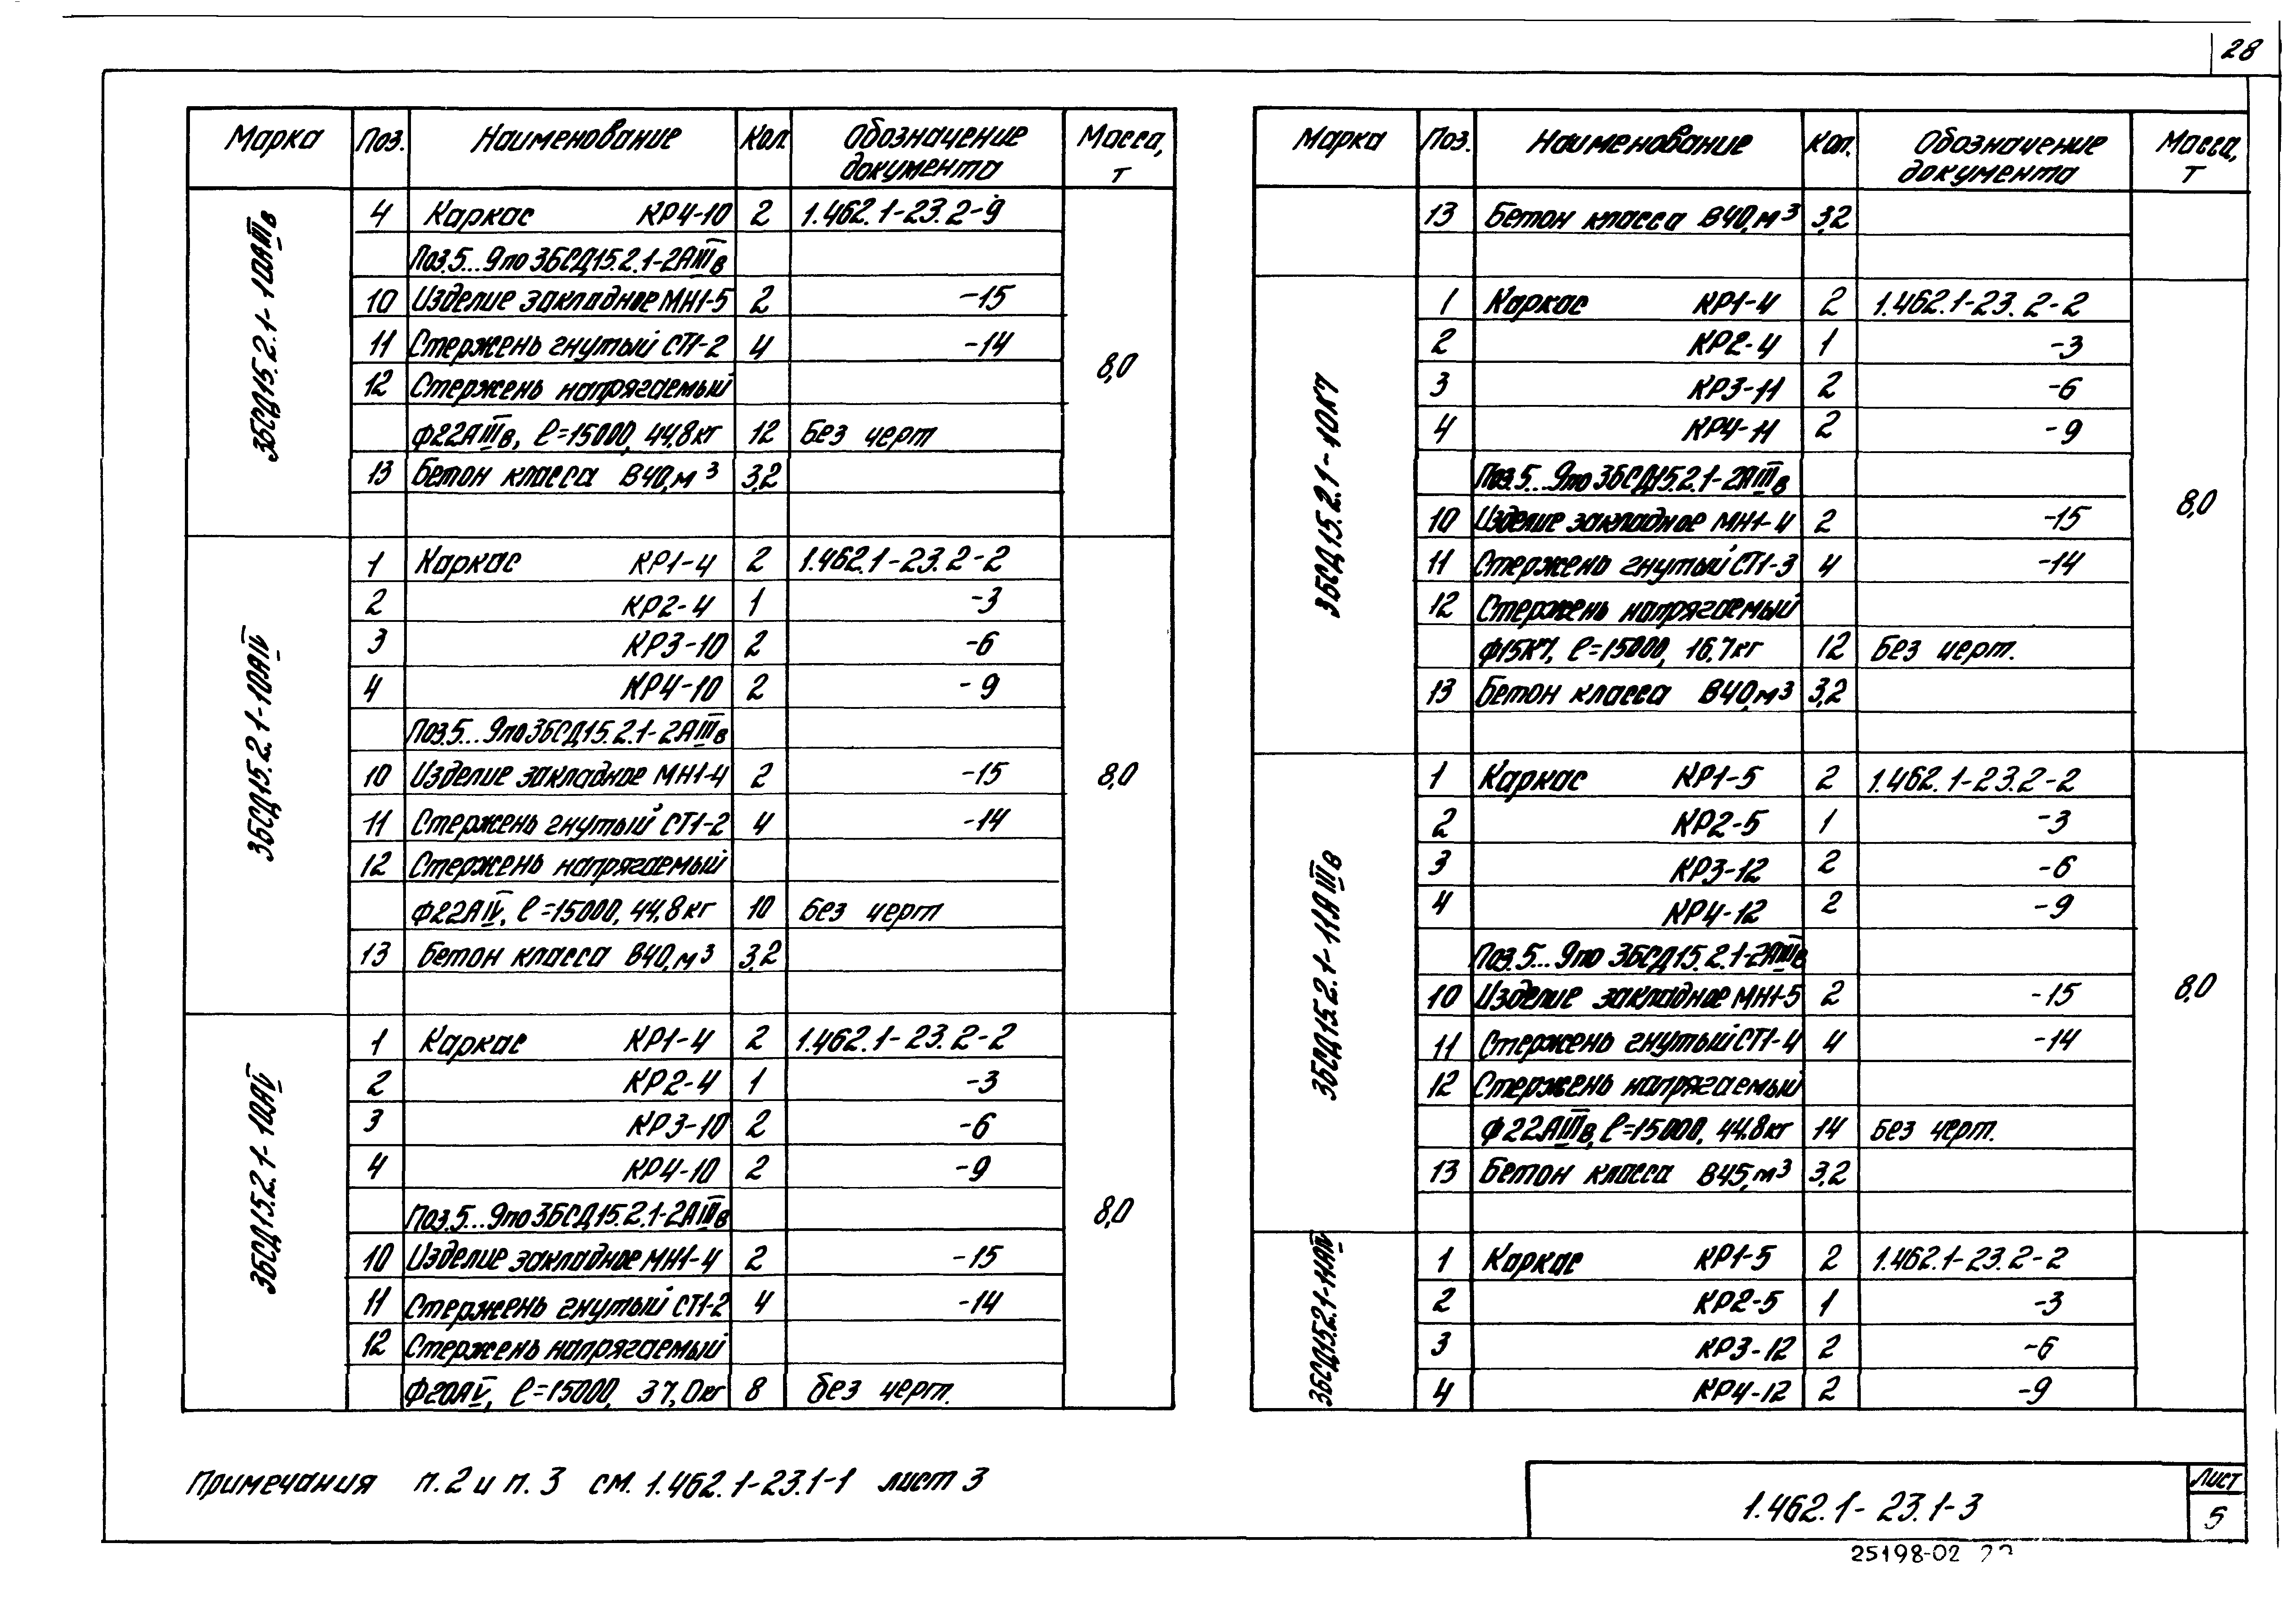 28
Марка Поз. Наименование Кол. Обозначение документа Масса, т
3БСД15.2.1-10АIIIв
4 Каркас КР4-10 2 1.462.1-23.2-9
Поз.5...9по 3БСД15.2.1-2АIIIв
10 Изделие закладное МН1-5 2 -15
11 Стержень гнутый СТ1-2 4 -14
8,0
12 Стержень напрягаемый
Ф22АIIIв, ℓ=15000, 44,8кг 12 Без черт
13 Бетон класса В40, м³ 3,2
3БСД15.2.1-10АIV
1 Каркас КР1-4 2 1.462.1-23.2-2
2 КР2-4 1 -3
3 КР3-10 2 -6
4 КР4-10 2 -9
Поз.5...9по 3БСД15.2.1-2АIIIв
10 Изделие закладное МН1-4 2 -15
8,0
11 Стержень гнутый СТ1-2 4 -14
12 Стержень напрягаемый
Ф22АIV, ℓ=15000, 44,8кг 10 Без черт
13 Бетон класса В40, м³ 3,2
3БСД15.2.1-10АV
1 Каркас КР1-4 2 1.462.1-23.2-2
2 КР2-4 1 -3
3 КР3-10 2 -6
4 КР4-10 2 -9
Поз.5...9по 3БСД15.2.1-2АIIIв
8,0
10 Изделие закладное МН1-4 2 -15
11 Стержень гнутый СТ1-2 4 -14
12 Стержень напрягаемый
Ф20АV, ℓ=15000, 37,0кг 8 без черт.
Марка Поз. Наименование Кол. Обозначение документа Масса, т
13 Бетон класса В40, м³ 3,2
3БСД15.2.1-10К7
1 Каркас КР1-4 2 1.462.1-23.2-2
2 КР2-4 1 -3
3 КР3-11 2 -6
4 КР4-11 2 -9
Поз.5...9по 3БСД15.2.1-2АIIIв
8,0
10 Изделие закладное МН1-4 2 -15
11 Стержень гнутый СТ1-3 4 -14
12 Стержень напрягаемый
Ф15К7, ℓ=15000, 16,7кг 12 Без черт.
13 Бетон класса В40, м³ 3,2
3БСД15.2.1-11АIIIв
1 Каркас КР1-5 2 1.462.1-23.2-2
2 КР2-5 1 -3
3 КР3-12 2 -6
4 КР4-12 2 -9
Поз.5...9по 3БСД15.2.1-2АIIIв
10 Изделие закладное МН1-5 2 -15
8,0
11 Стержень гнутый СТ1-4 4 -14
12 Стержень напрягаемый
Ф22АIIIв, ℓ=15000, 44,8кг 14 Без черт.
13 Бетон класса В45, м³ 3,2
3БСД15.2.1-11АIV
1 Каркас КР1-5 2 1.462.1-23.2-2
2 КР2-5 1 -3
3 КР3-12 2 -6
4 КР4-12 2 -9
Примечания п.2 и п.3 см. 1.462.1-23.1-1 лист 3
1.462.1-23.1-3
Лист
5
25198-02